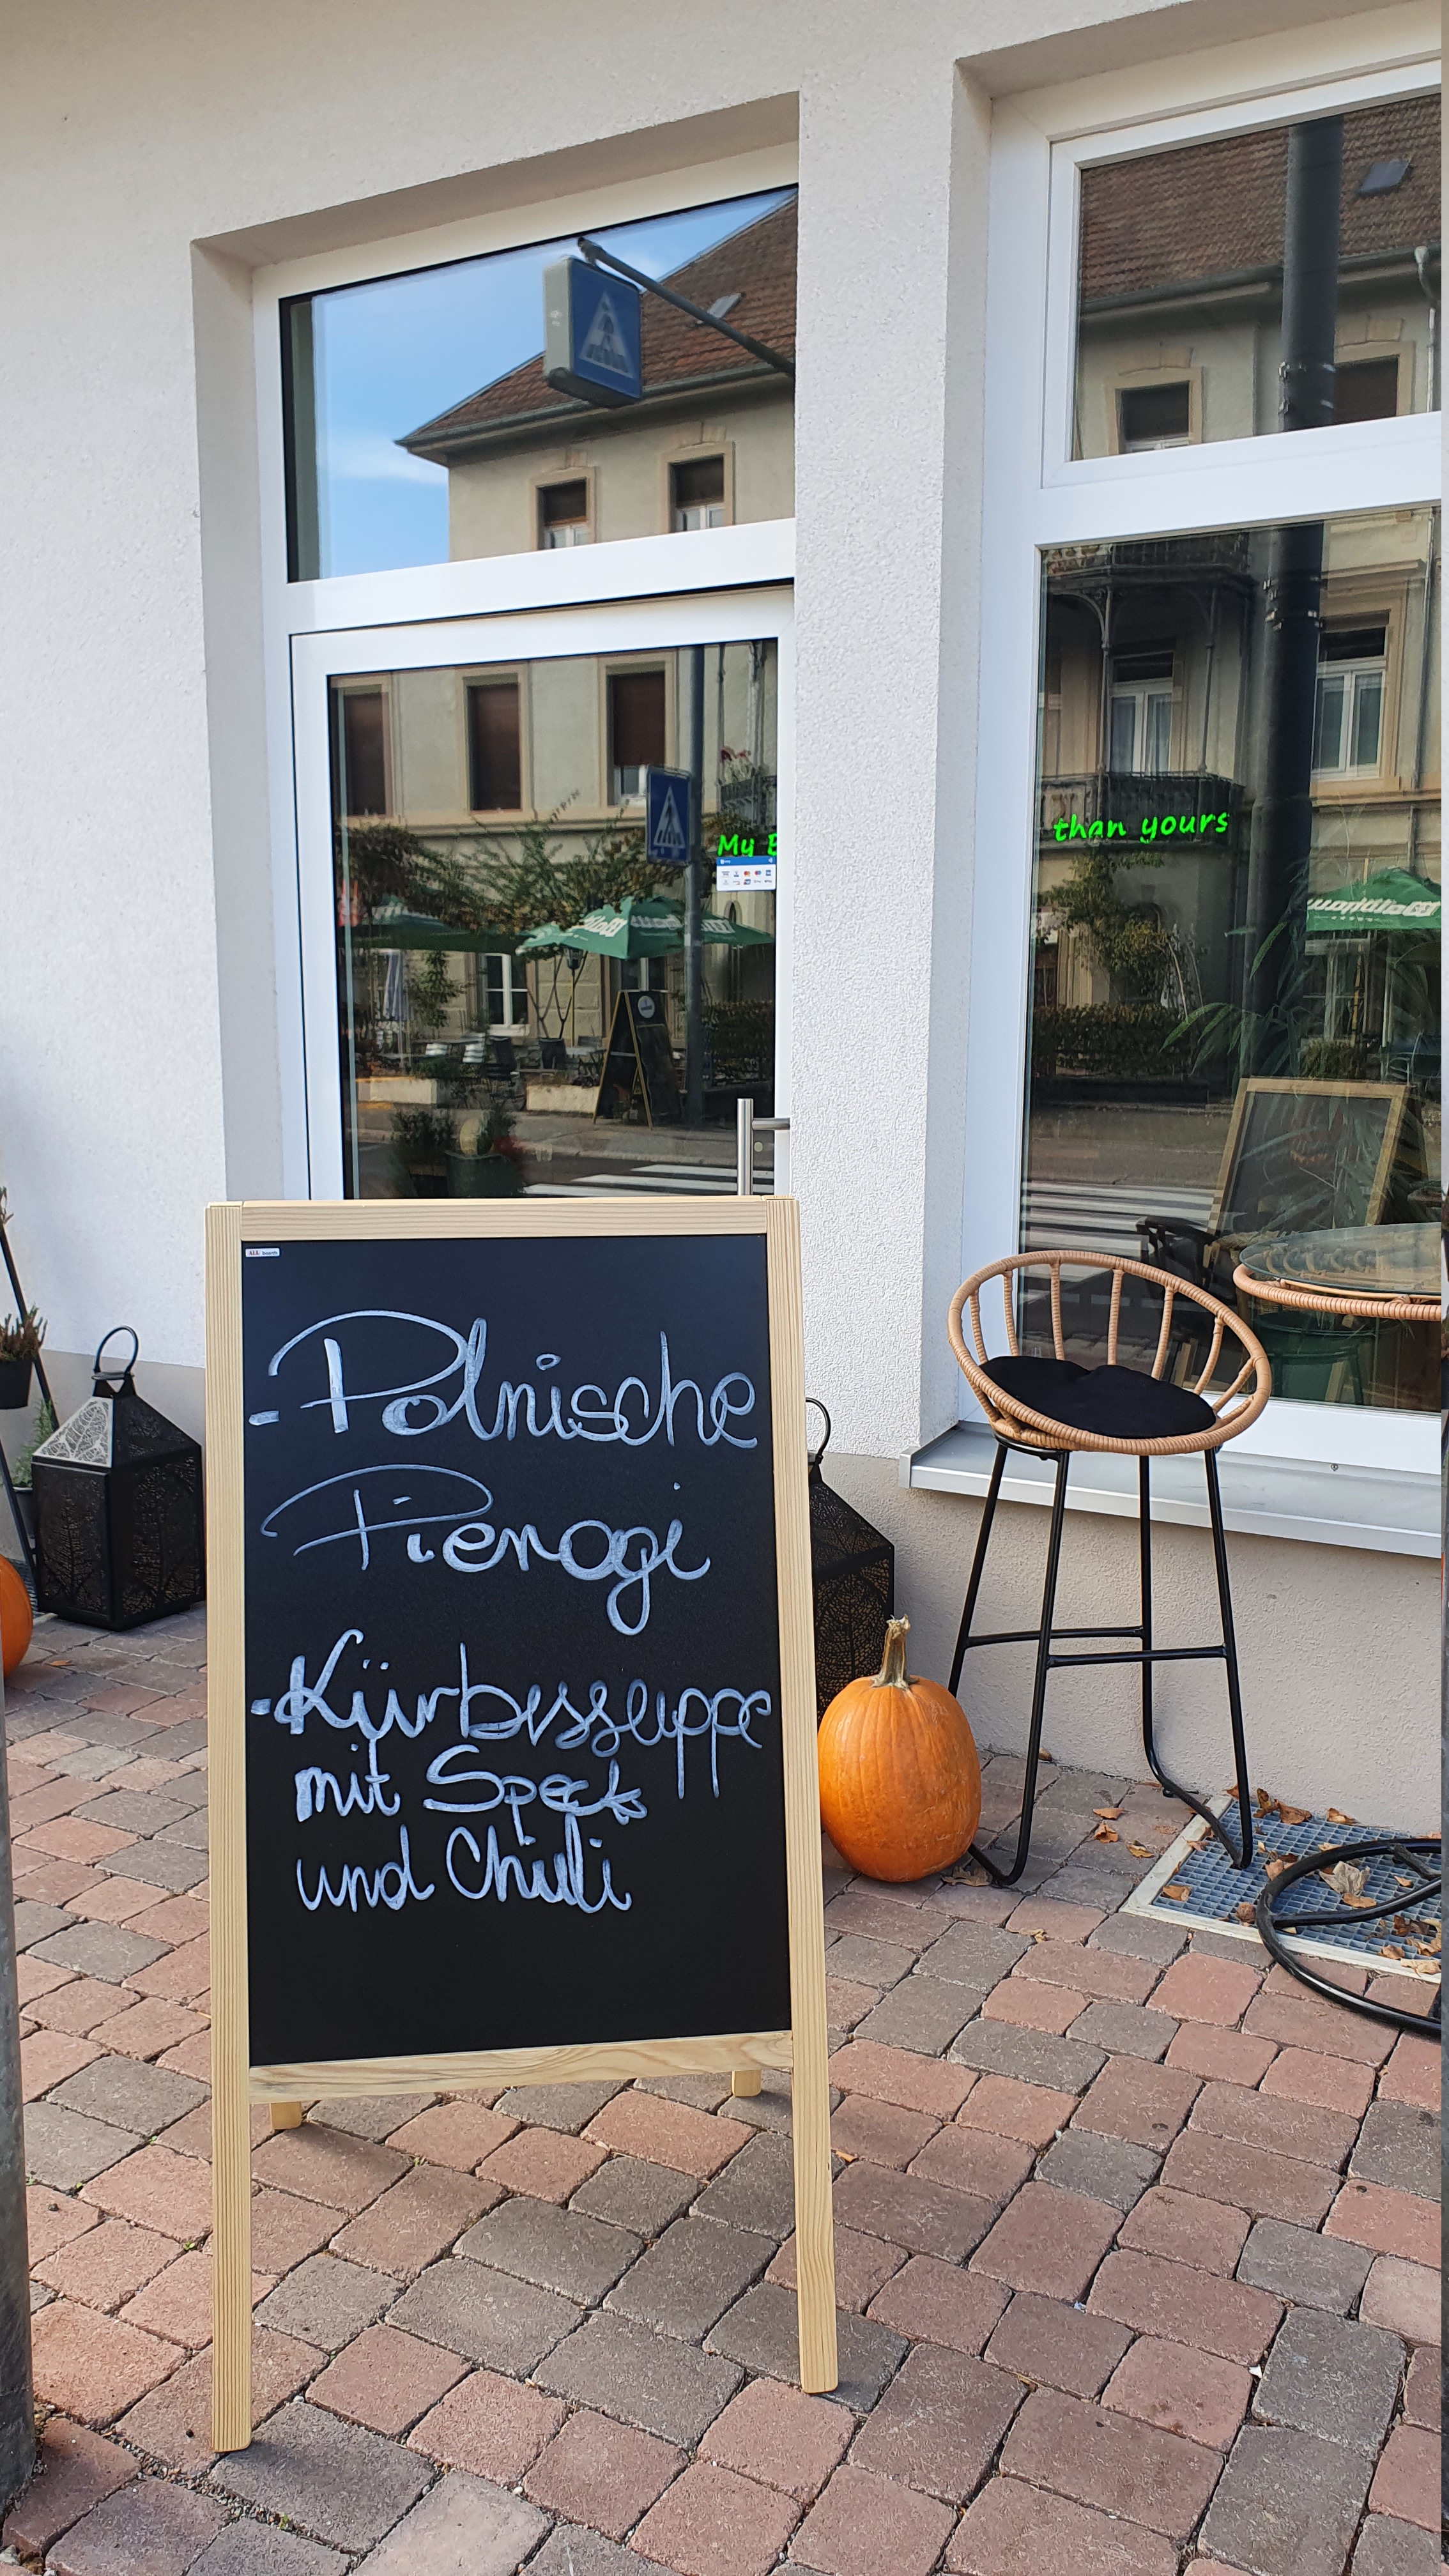 My
than yours
ALL boards
- Polnische
Pierogi
- Kürbissuppe
mit Speck
und Chili